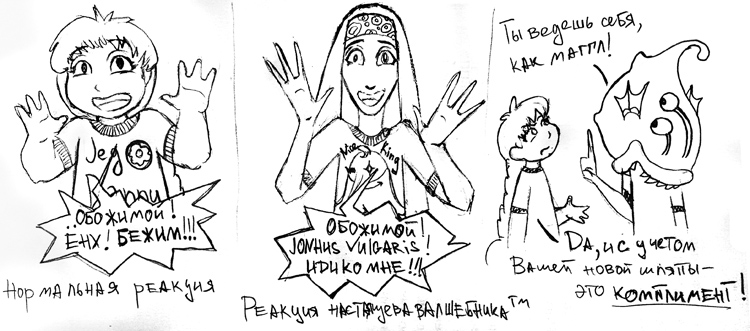 Jedo
..Обожимой!
ЁНХ! БЕЖИМ!!!
Нормальная реакция
King
Обожимой!
JONHUS VULGARIS!
ИДИ КО МНЕ!!!
Реакция настящева валшебника™
Ты ведешь себя,
как маггл!
Да, и с учетом
Вашей новой шляпы-
это комплимент!